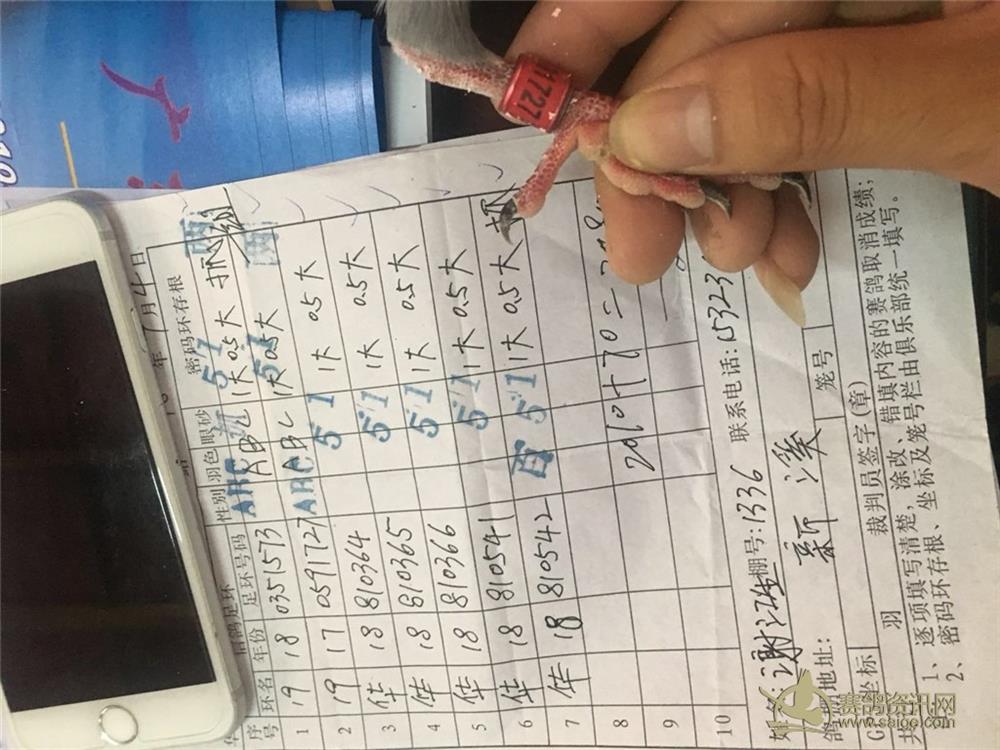 年 7月4日
足环
序号 环名 年份 足环号码 性别 羽色 眼砂 密码环存根
1 19 18 0351573 ABC 5 1 1大 0.5大
2 19 17 0591727 ABC 5 1 1大 0.5大
3 华 18 810364 5 1 1大 0.5大
4 华 18 810365 5 1 1大 0.5大
5 华 18 810366 5 1 1大 0.5大
6 华 18 810541 5 1 1大 0.5大
7 华 18 810542 百 5 1 1大 0.5大
8 2010+70=
9
10
棚号:1336 联系电话:15323
地址: 新溪
坐标
共 羽 裁判员签字(章) 笼号
1、逐项填写清楚，涂改、错填内容的赛鸽取消成绩；
2、密码环存根、坐标及笼号栏由俱乐部统一填写。
1727
赛鸽资讯网
www.saige.com